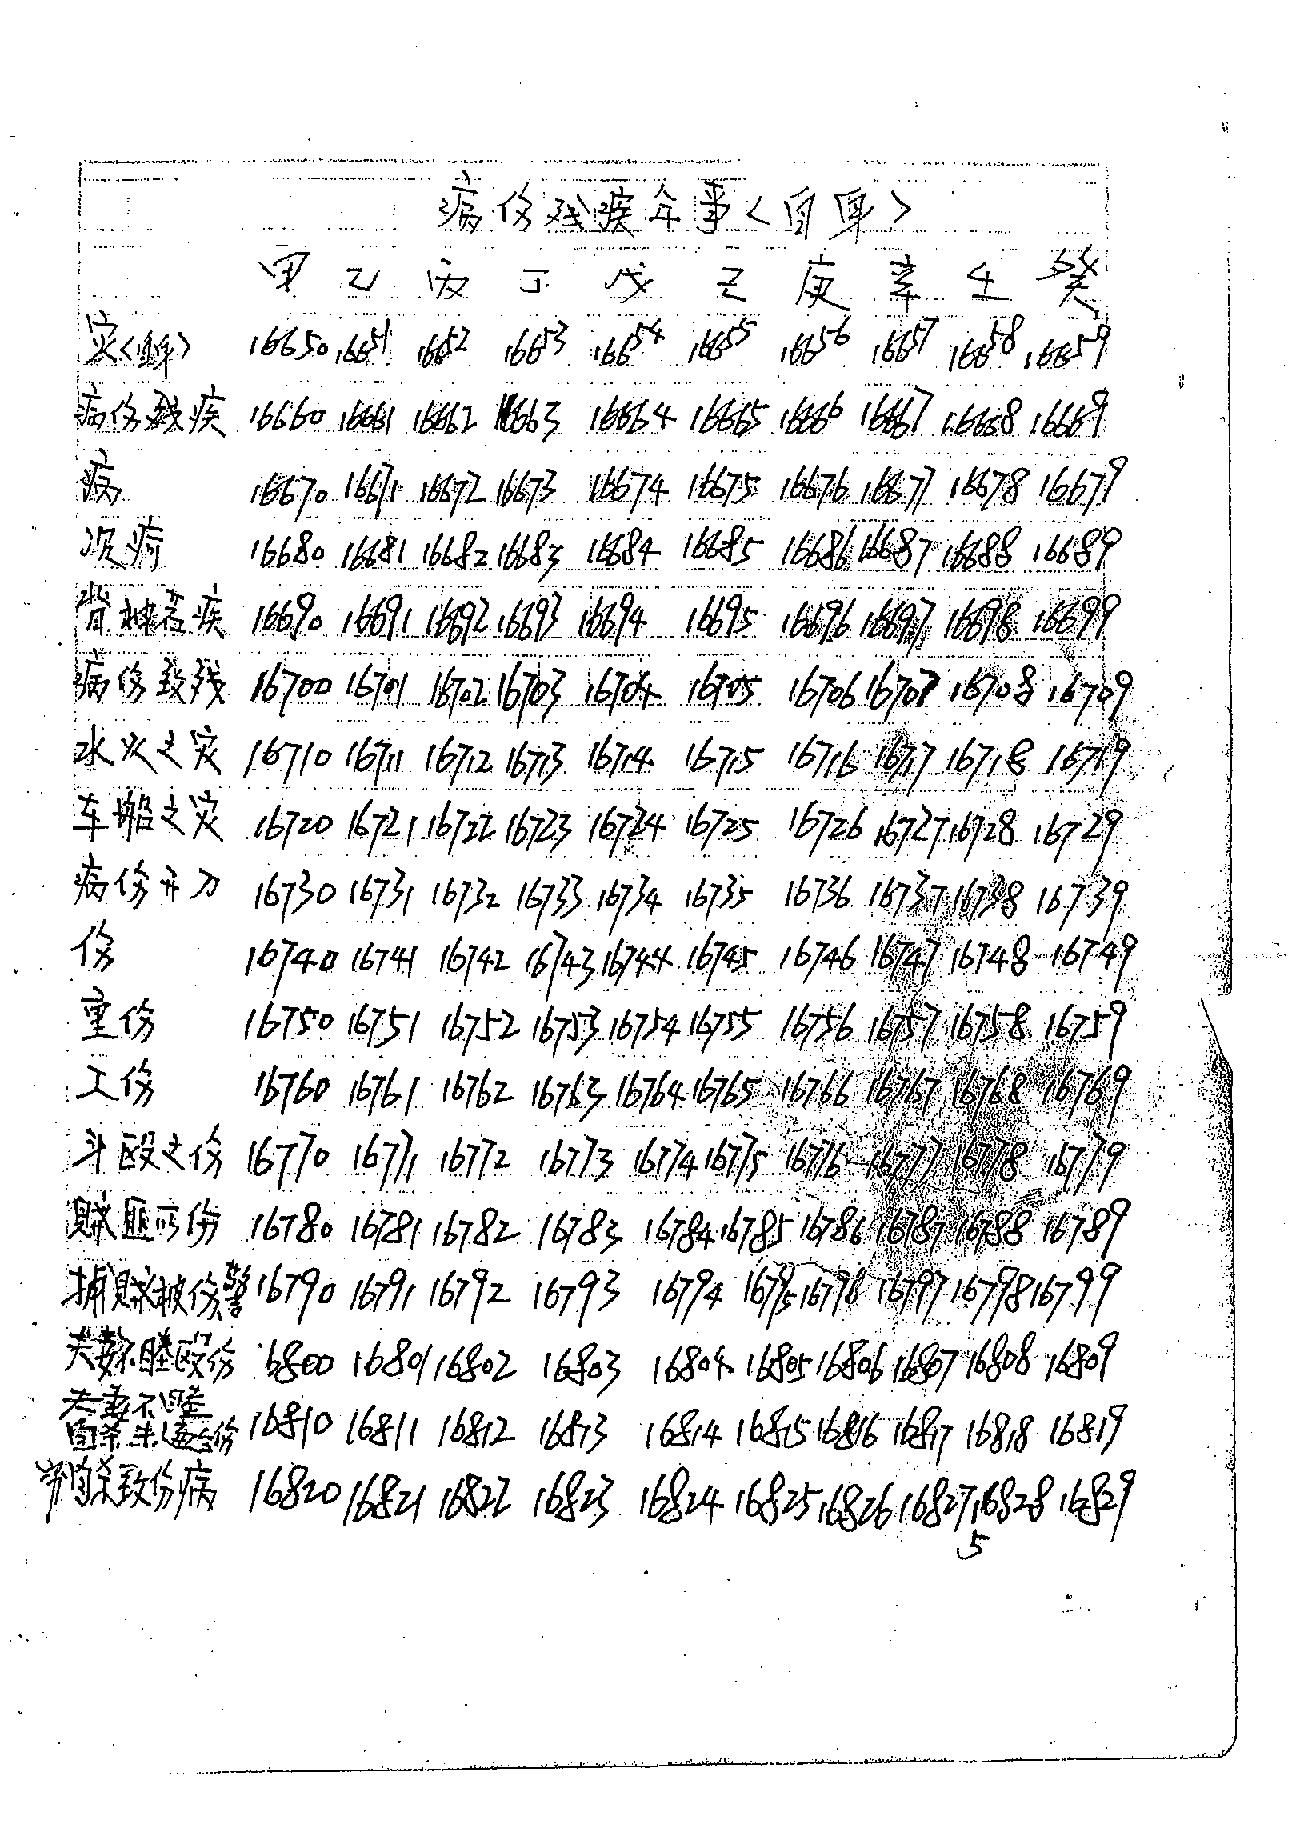 病伤残疾年事<自身>
甲 乙 丙 丁 戊 己 庚 辛 壬 癸
灾 16650 16651 16652 16653 16654 16655 16656 16657 16658 16659
病伤残疾 16660 16661 16662 16663 16664 16665 16666 16667 16668 16669
病 16670 16671 16672 16673 16674 16675 16676 16677 16678 16679
16680 16681 16682 16683 16684 16685 16686 16687 16688 16689
疾 16690 16691 16692 16693 16694 16695 16696 16697 16698 16699
病伤致残 16700 16701 16702 16703 16704 16705 16706 16707 16708 16709
水火之灾 16710 16711 16712 16713 16714 16715 16716 16717 16718 16719
车船之灾 16720 16721 16722 16723 16724 16725 16726 16727 16728 16729
病伤开刀 16730 16731 16732 16733 16734 16735 16736 16737 16738 16739
伤 16740 16741 16742 16743 16744 16745 16746 16747 16748 16749
重伤 16750 16751 16752 16753 16754 16755 16756 16757 16758 16759
工伤 16760 16761 16762 16763 16764 16765 16766 16767 16768 16769
斗殴之伤 16770 16771 16772 16773 16774 16775 16776 16777 16778 16779
贼匪所伤 16780 16781 16782 16783 16784 16785 16786 16787 16788 16789
捕贼被伤警 16790 16791 16792 16793 16794 16795 16798 16797 16798 16799
夫妻不睦殴伤 16800 16801 16802 16803 16804 16805 16806 16807 16808 16809
夫妻不睦
自杀未遂伤 16810 16811 16812 16813 16814 16815 16816 16817 16818 16819
自杀致伤病 16820 16821 16822 16823 16824 16825 16826 16827 16828 16829
5